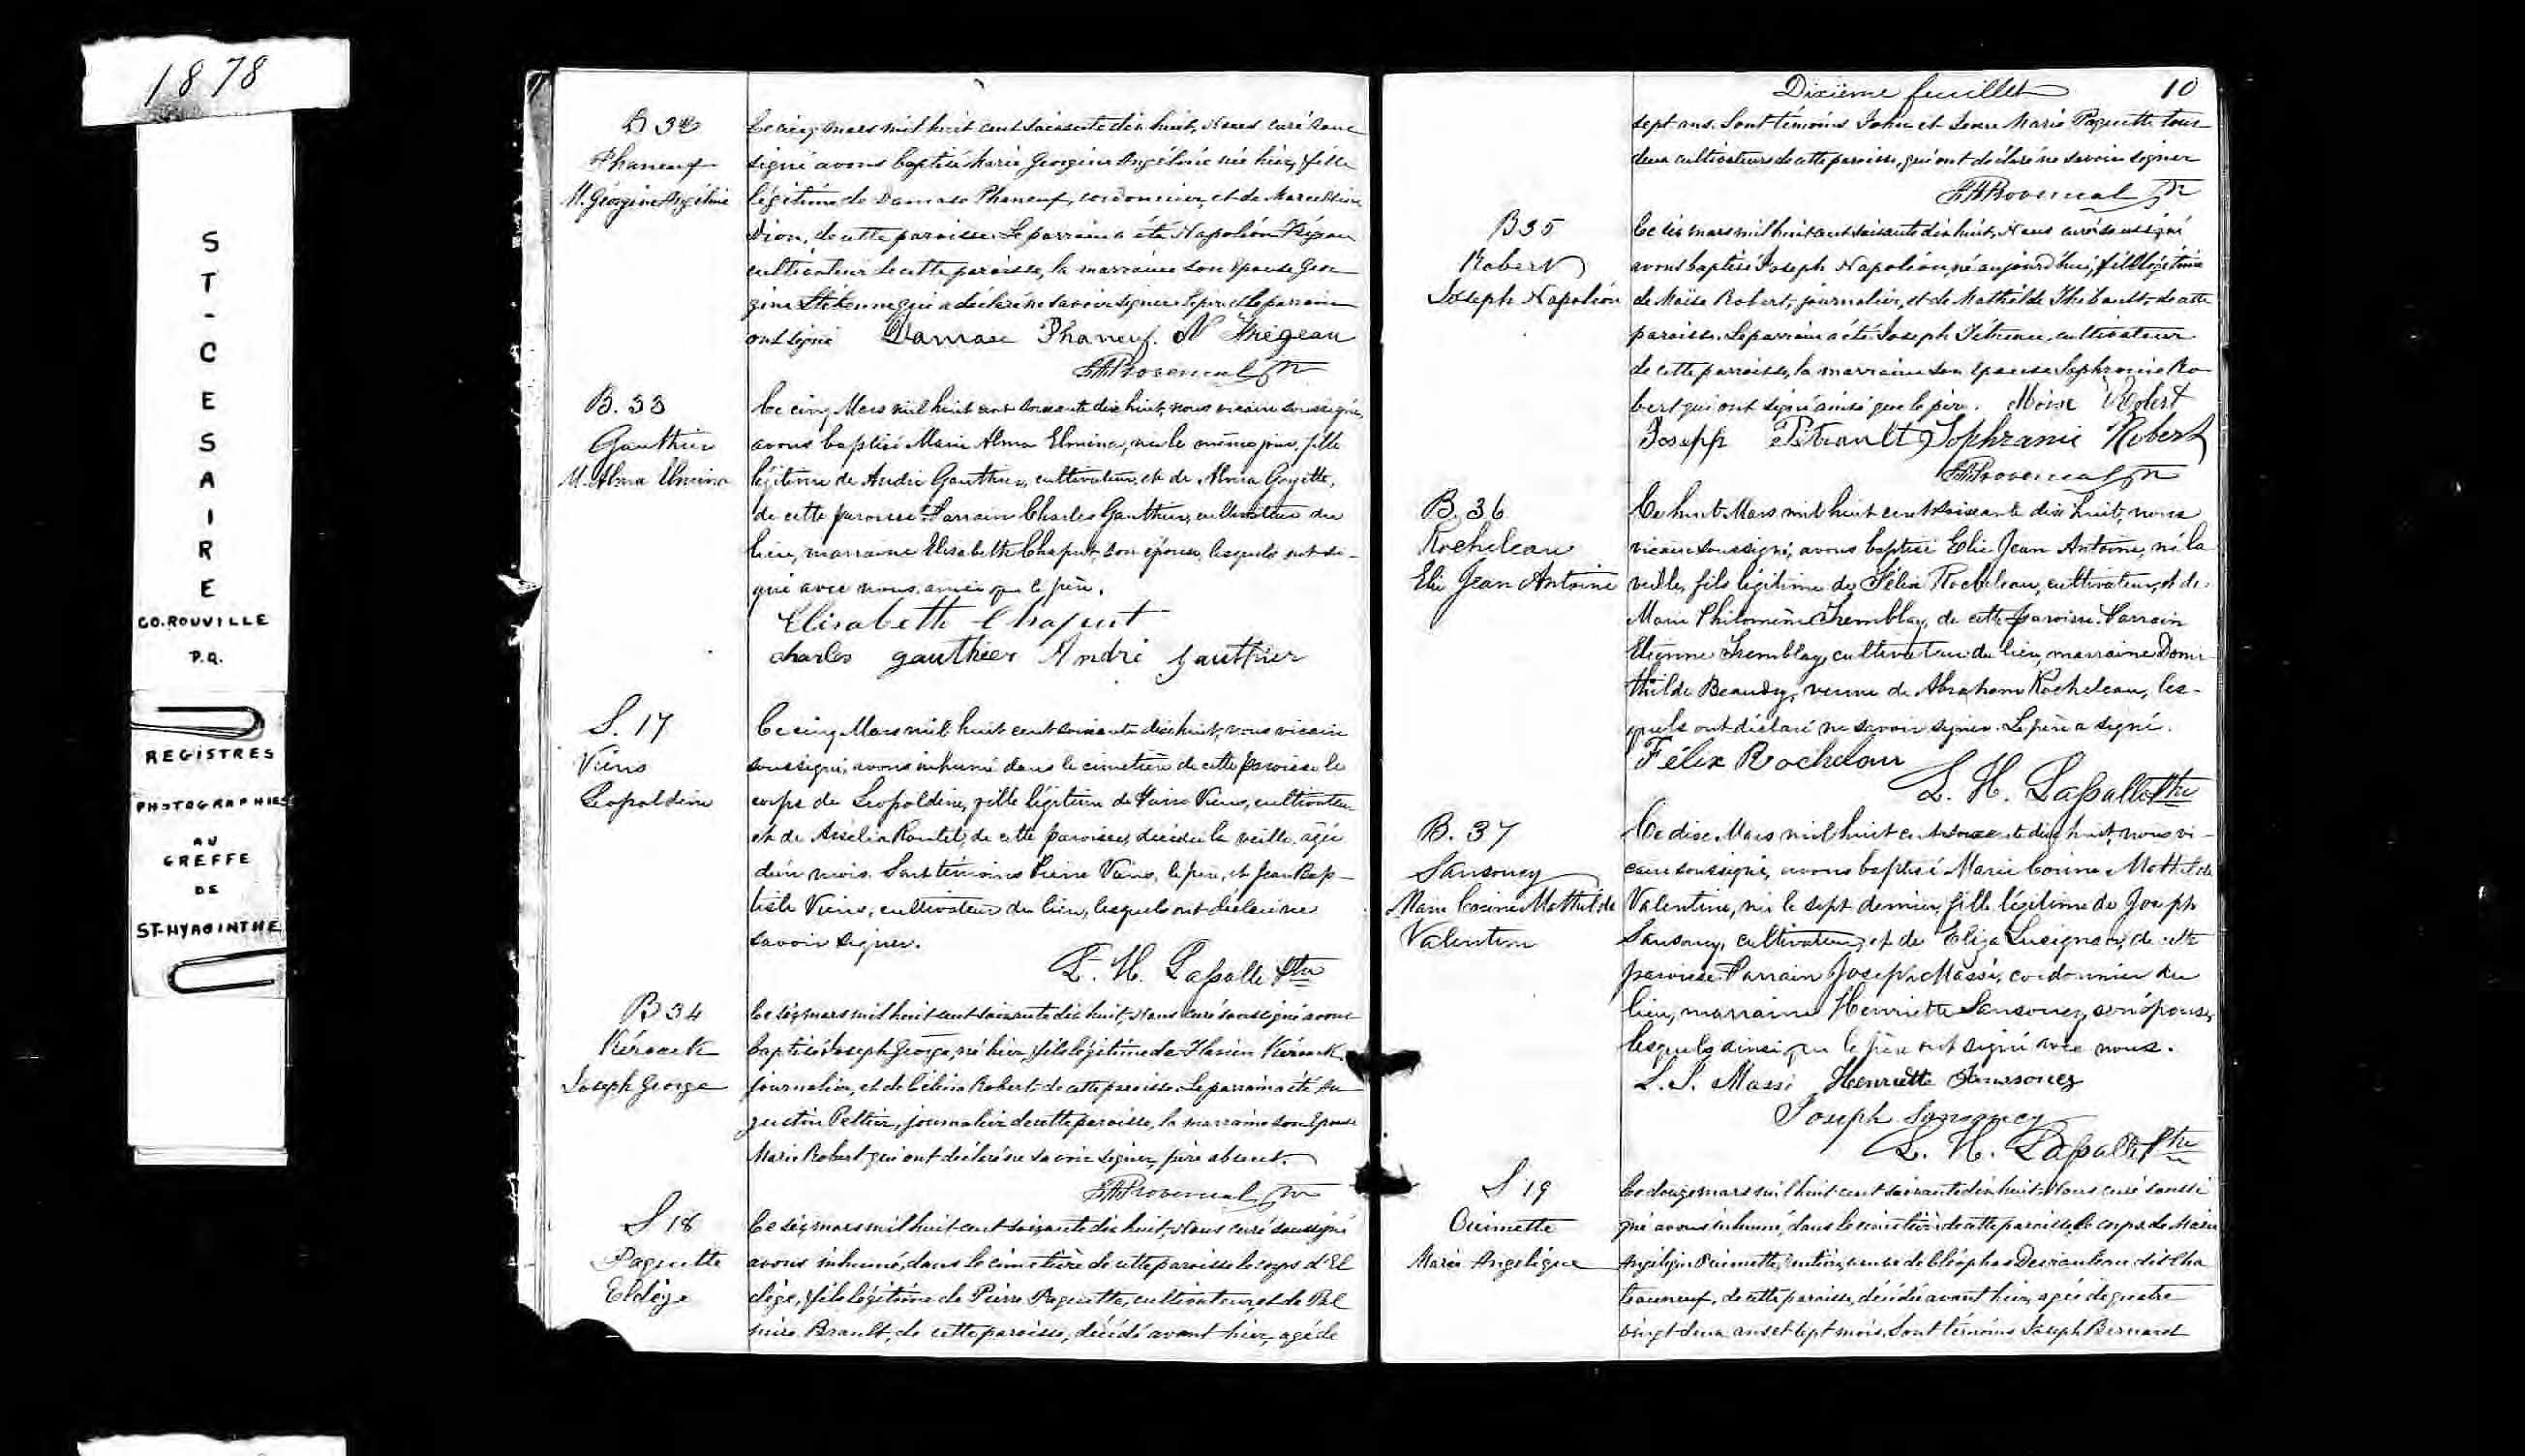 1878
ST-CESAIRE
CO. ROUVILLE
P.Q.
REGISTRES
PHOTOGRAPHIES
AU
GREFFE
DE
ST-HYACINTHE
B 32
Phaneuf
M. Géorgine Angéline
Ce cinq mars mil huit cent soixante dix huit, Nous curé sous
signé avons baptisé Marie Georgine Angéline née hier, fille
légitime de Damase Phaneuf, cordonnier, et de Marcelline
Dion, de cette paroisse. Le parrain a été Napoléon
cultivateur de cette paroisse, la marraine son épouse Geor
gina qui a déclaré ne savoir signer. Le père et le parrain
ont signé Damase Phaneuf. N
Provencal Ptr
B. 33
Gauthier
M. Alma Elmina
Ce cinq Mars mil huit cent soixante dix huit, nous vicaire soussigné,
avons baptisé Marie Alma Elmina, née le même jour, fille
légitime de André Gauthier, cultivateur, et de Alma Goyette,
de cette paroisse. Parrain Charles Gauthier, cultivateur du
lieu, marraine Elisabette Chaput, son épouse, lesquels ont si-
gné avec nous, ainsi que le père.
Elisabette Chaput
charles gauthier André gauthier
S. 17
Viens
Leopoldine
Ce cinq Mars mil huit cent soixante dix huit, nous vicaire
soussigné, avons inhumé dans le cimetière de cette paroisse le
corps de Leopoldine, fille légitime de Pierre Viens, cultivateur
et de de cette paroisse, décédée la veille, agée
d'un mois. Sont témoins Pierre Viens, le père, et Jean Bap-
tiste Viens, cultivateur du lieu, lesquels ont déclaré ne
savoir signer.
L. H. Lasalle Ptre
B 34
Kérouack
Joseph George
Ce six mars mil huit cent soixante dix huit, Nous curé soussigné avons
baptisé Joseph George, né hier, fils légitime de Kérouack,
journalier, et de Célina Robert de cette paroisse. Le parrain a été Au
gustin Peltier, journalier de cette paroisse, la marraine son épouse
Marie Robert qui ont déclaré ne savoir signer, père absent.
Provencal Ptr
S 18
Paquette
Eldége
Ce six mars mil huit cent soixante dix huit, Nous curé soussigné
avons inhumé, dans le cimetière de cette paroisse le corps d'El
dége, fils légitime de Pierre Paquette, cultivateur, et de Pal
mire Brault, de cette paroisse, décédé avant hier, agé de
Dixième feuillet 10
sept ans. Sont témoins John et Marie Paquette tous
deux cultivateurs de cette paroisse, qui ont déclaré ne savoir signer
Provencal Ptr
B 35
Robert
Joseph Napoléon
Ce six mars mil huit cent soixante dix huit, Nous curé soussigné
avons baptisé Joseph Napoléon, né aujourd'hui, fils légitime
de Moïse Robert, journalier, et de Mathilde Thibault, de cette
paroisse. Le parrain a été Joseph cultivateur
de cette paroisse, la marraine son épouse Sophronie Ro
bert qui ont signé ainsi que le père. Moïse Robert
Joseph Tétrault Sophranie Robert
Provencal Ptr
B. 36
Rocheleau
Elie Jean Antoine
Ce huit Mars mil huit cent soixante dix huit, nous
vicaire soussigné, avons baptisé Elie Jean Antoine, né la
veille, fils légitime de Félix Rocheleau, cultivateur, et de
Marie Philomène Tremblay, de cette paroisse. Parrain
Etienne Tremblay, cultivateur du lieu, marraine Domi-
thilde Beaudry, veuve de Abraham Rocheleau, les-
quels ont déclaré ne savoir signer. Le père a signé.
Félix Rochelau
L. H. Lasalle Ptre
B. 37
Sansoucy
Marie Corinne Mathilde
Valentine
Ce dix Mars mil huit cent soixante dix huit, nous vi-
caire soussigné, avons baptisé Marie Corinne Mathilde
Valentine, née le sept dernier, fille légitime de Joseph
Sansoucy, cultivateur, et de Eliza Lusignan, de cette
paroisse. Parrain Joseph Massé, cordonnier du
lieu, marraine Henriette Sansoucy, son épouse,
lesquels ainsi que le père ont signé avec nous.
L. J. Massé Henriette Sansoucy
Joseph Sansoucy
L. H. Lasalle Ptre
S 19
Ouimette
Marie Angelique
Ce douze mars mil huit cent soixante dix huit, Nous curé soussi
gné avons inhumé, dans le cimetière de cette paroisse, le corps de Marie
Angélique Ouimette, rentière, veuve de Cléophas dit Cha
teauneuf, de cette paroisse, décédée avant hier, agée de quatre
vingt deux ans et sept mois. Sont témoins Joseph Bernard